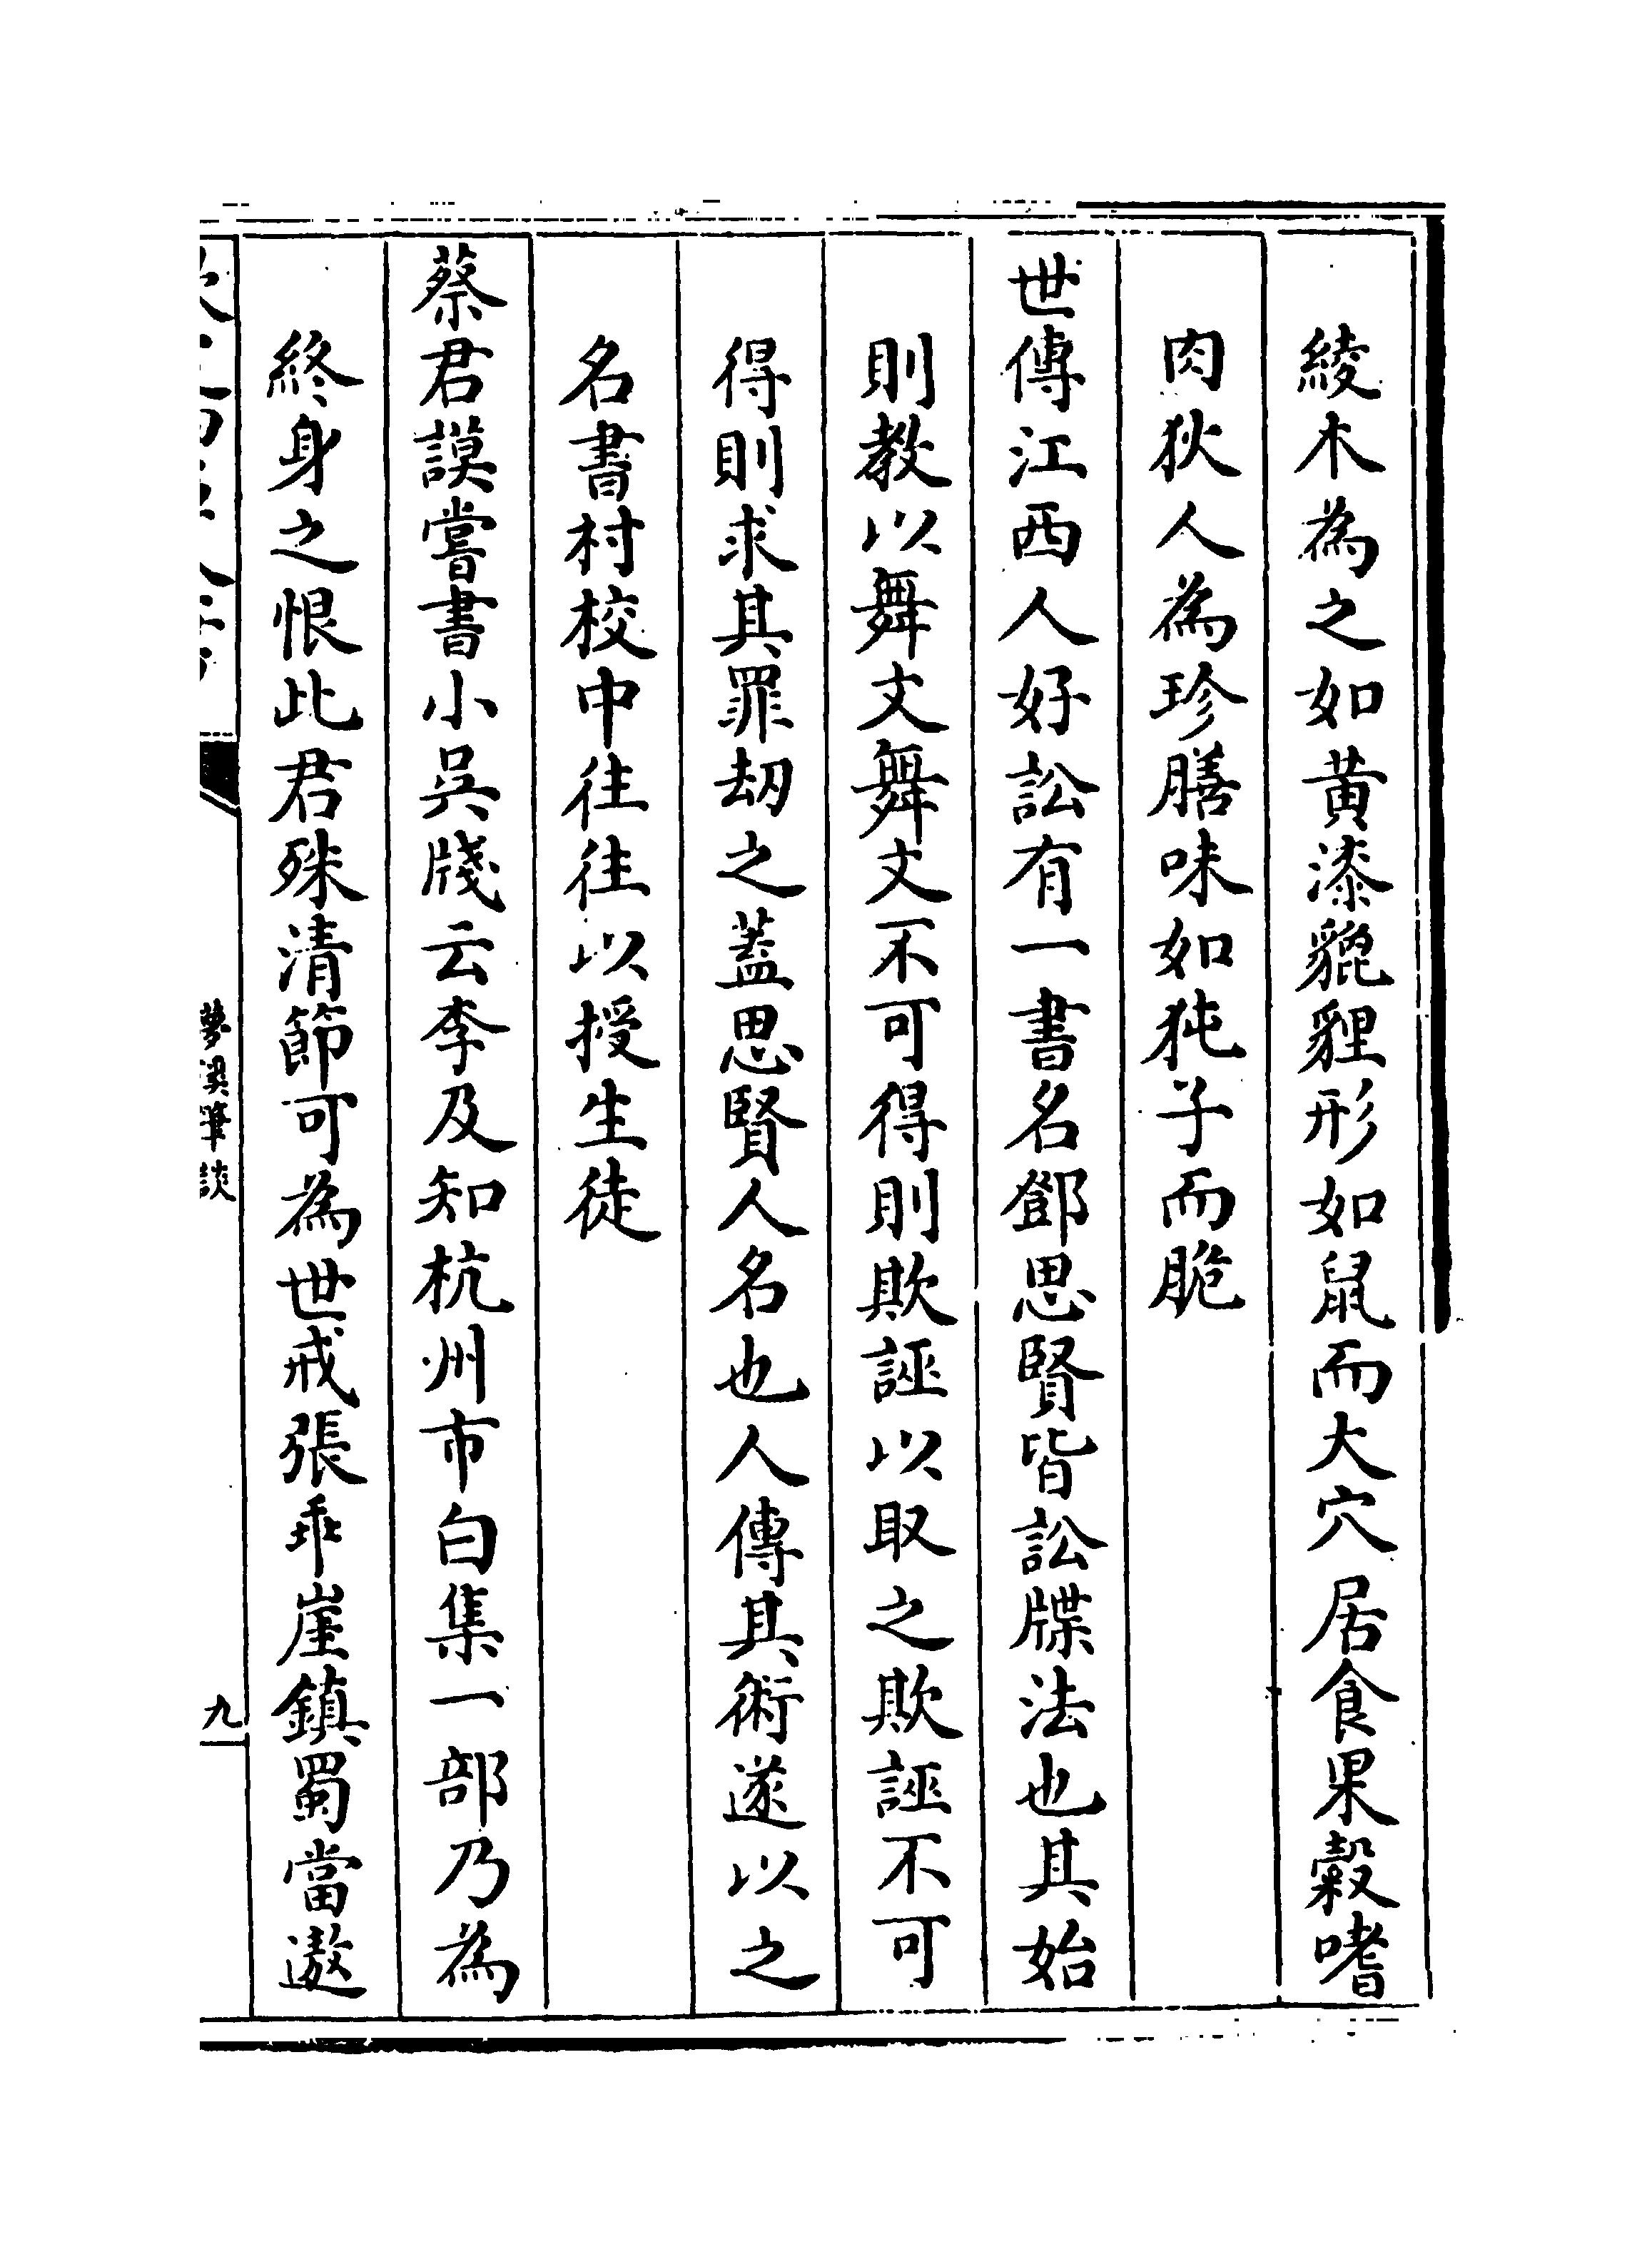 綾木為之如黄漆貔貍形如鼠而大穴居食果穀嗜
肉狄人為珍膳味如㹠子而脆
世傳江西人好訟有一書名鄧思賢皆訟牒法也其始
則教以舞文舞文不可得則欺誣以取之欺誣不可
得則求其罪刧之葢思賢人名也人傳其術遂以之
名書村校中往往以授生徒
蔡君謨嘗書小吳牋云李及知杭州市白集一部乃為
終身之恨此君殊清節可為世戒張乖崖鎮蜀當遨
夢溪筆談
九